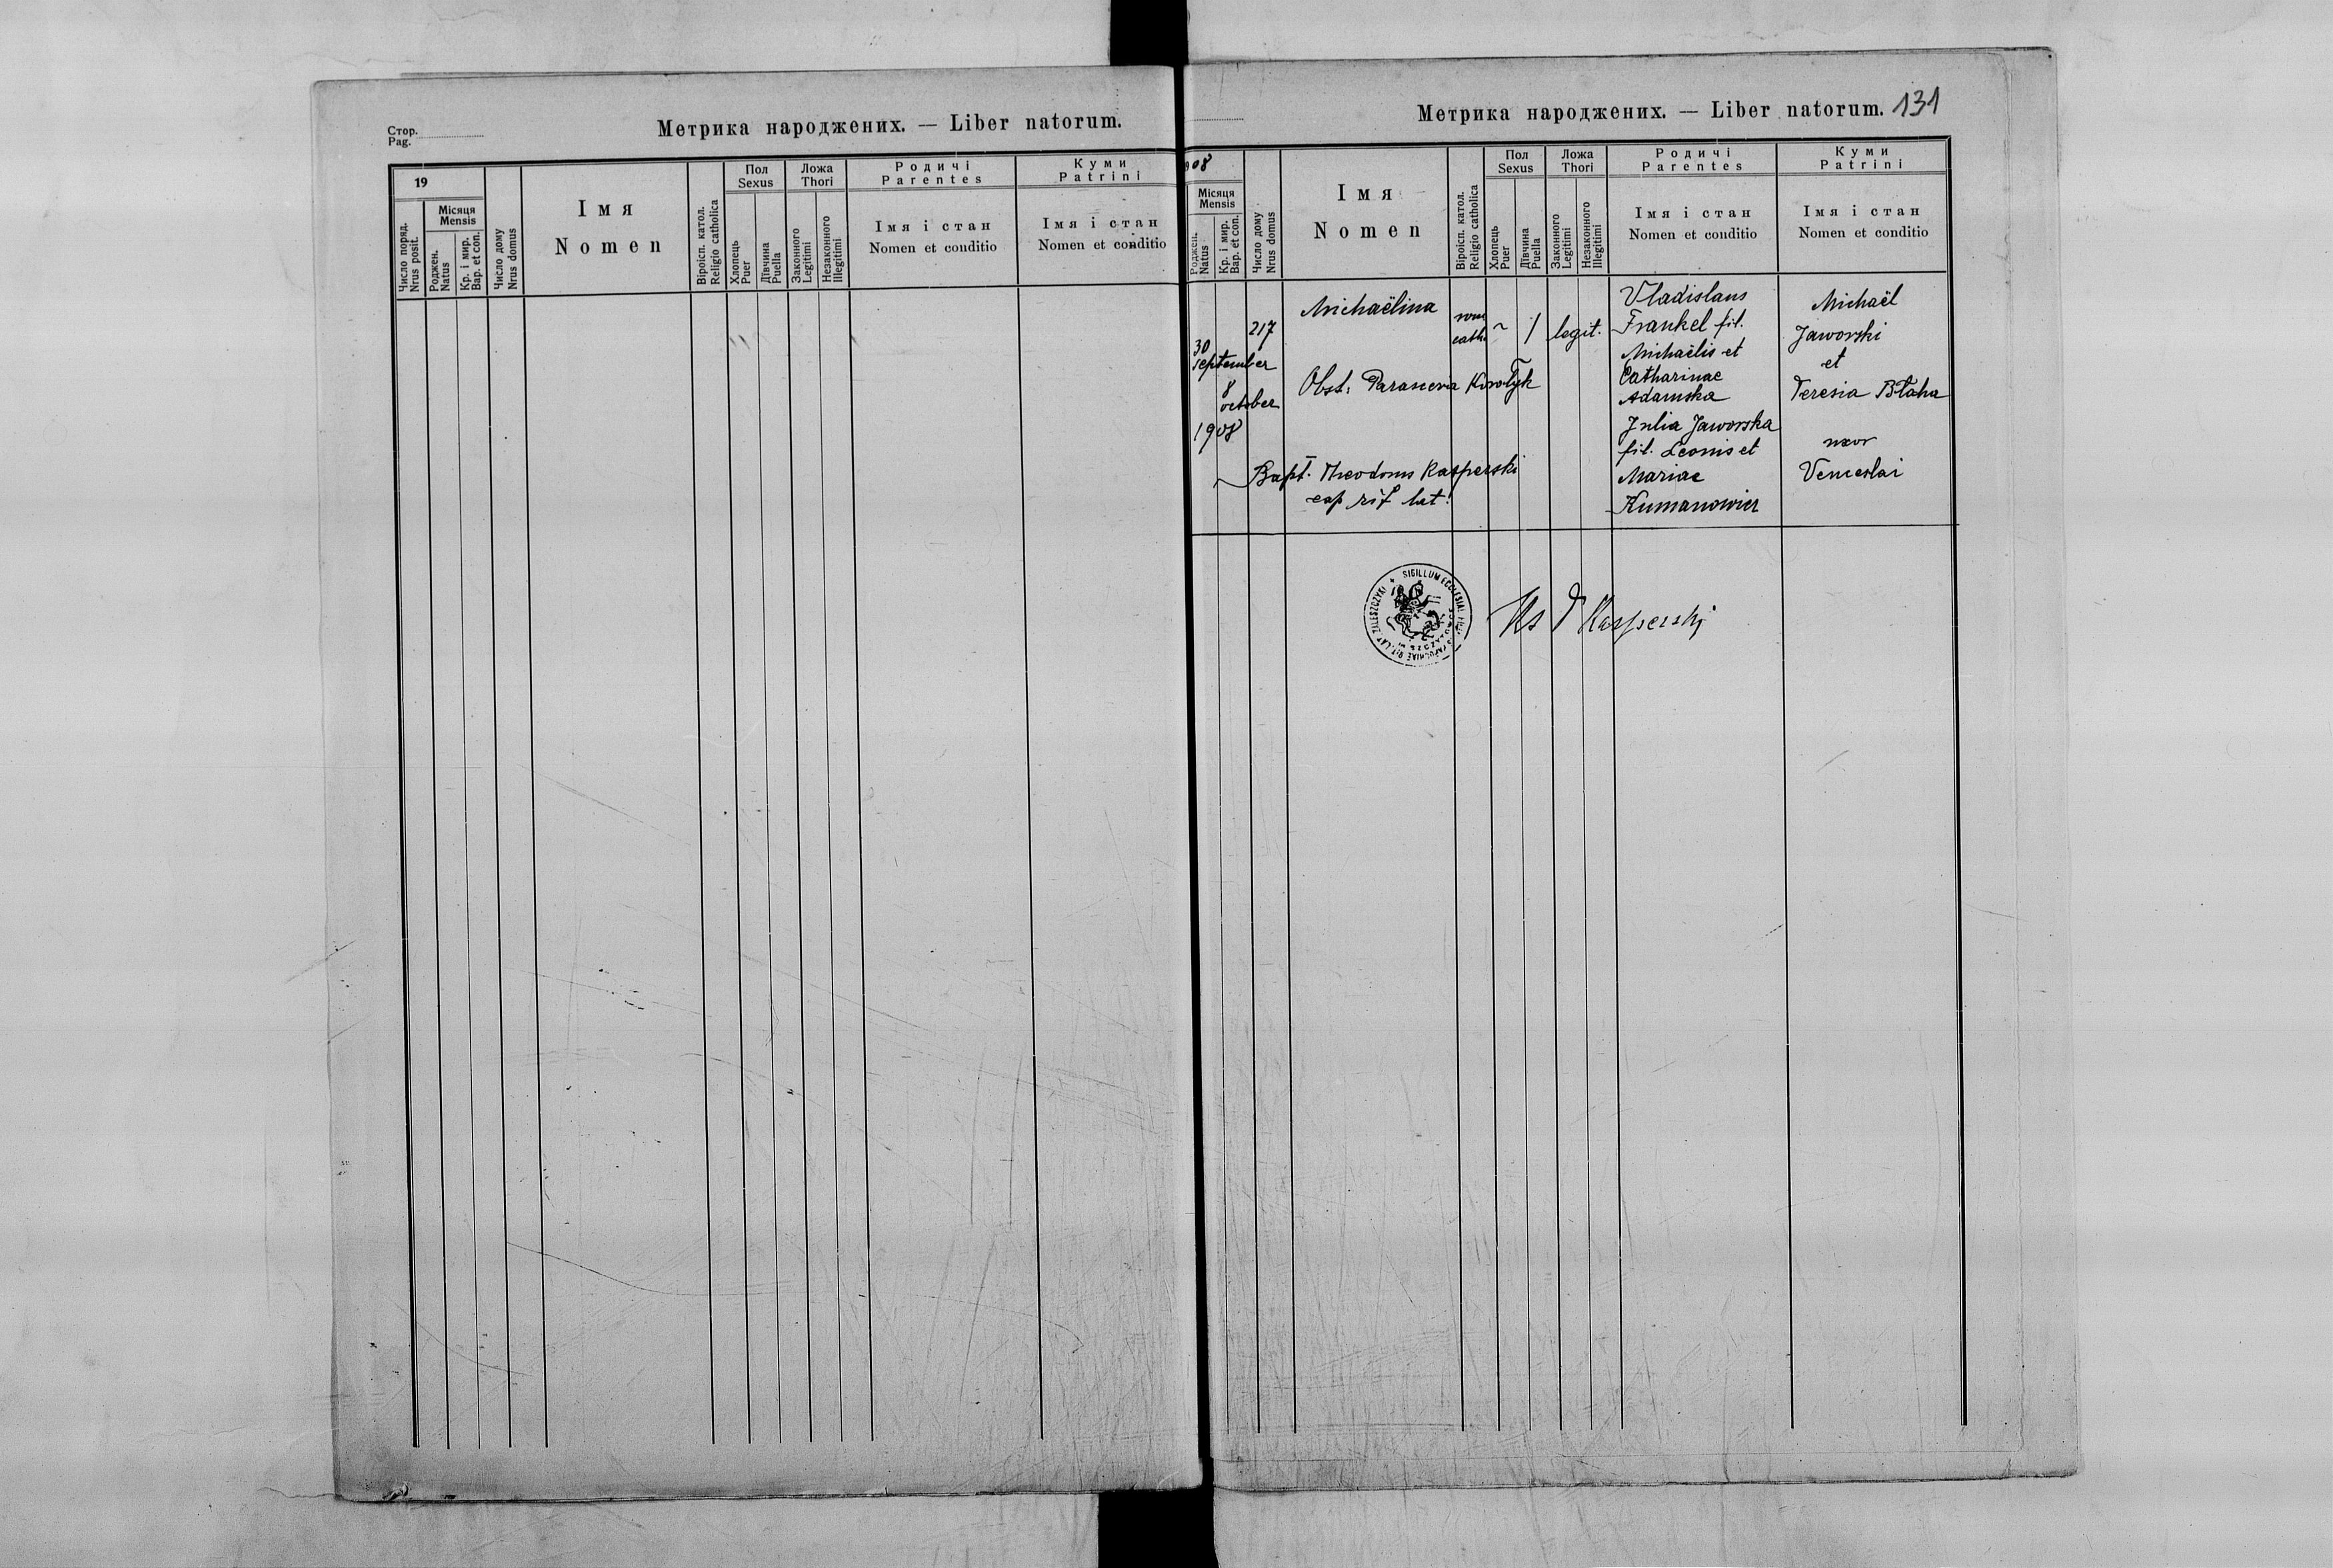 Стор.
Pag.
Метрика народжених. — Liber natorum.
19
Число поряд.
Nrus posit.
Місяця
Mensis
Роджен.
Natus
Кр. і мир.
Bap. et con.
Число дому
Nrus domus
Імя
Nomen
Віроісп. катол.
Religio catholica
Пол
Sexus
Хлопець
Puer
Дівчина
Puella
Ложа
Thori
Законного
Legitimi
Незаконного
Illegitimi
Родичі
Parentes
Імя і стан
Nomen et conditio
Куми
Patrini
Імя і стан
Nomen et conditio
Метрика народжених. — Liber natorum. 131
908
Місяця
Mensis
Роджен.
Natus
Кр. і мир.
Bap. et con.
Число дому
Nrus domus
Імя
Nomen
Віроісп. катол.
Religio catholica
Пол
Sexus
Хлопець
Puer
Дівчина
Puella
Ложа
Thori
Законного
Legitimi
Незаконного
Illegitimi
Родичі
Parentes
Імя і стан
Nomen et conditio
Куми
Patrini
Імя і стан
Nomen et conditio
30
september
8
october
1908
217
Michaëlina
Obst: Parascevia
Bapt. Theodorus Kasperski
cap rit lat.
rom
cath.
~
/
legit.
Vladislaus
Frankel fil.
Michaëlis et
Catharinae
Adamska
Julia Jaworska
fil. Leonis et
Mariae
Kumanowicz
Michaël
Jaworski
et
Teresia Błaha
uxor
Venceslai
SIGILLUM ECCLESIAE RIT. LAT ZALESZCZYKI
Ks T Kasperski